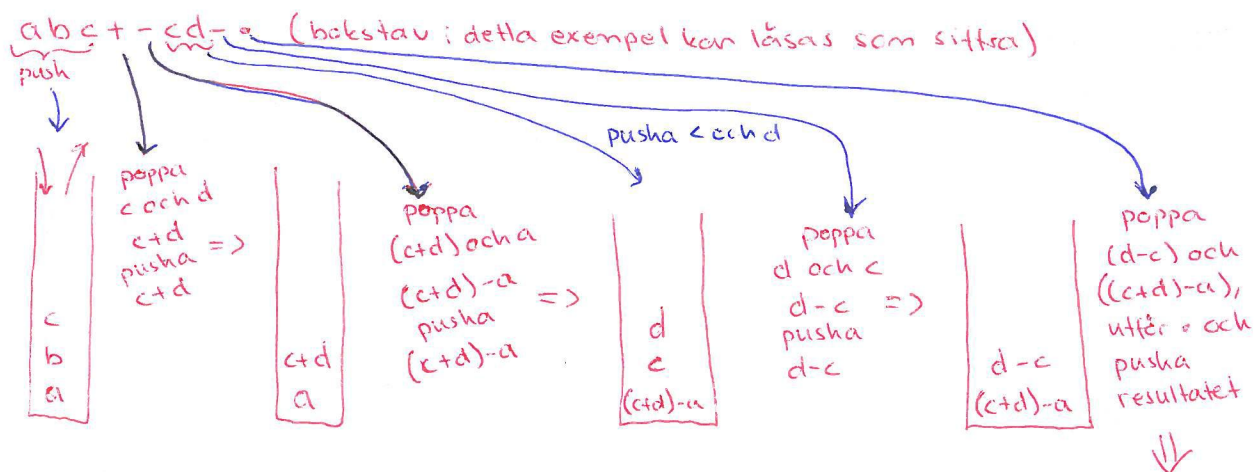 abc+-cd-• (bokstav i detta exempel kan läsas som siffra)
push
pusha c och d
poppa
c och d
c+d =>
pusha
c+d
c
b
a
c+d
a
poppa
(c+d) och a
(c+d)-a =>
pusha
(c+d)-a
d
c
(c+d)-a
poppa
d och c
d-c =>
pusha
d-c
d-c
(c+d)-a
poppa
(d-c) och
((c+d)-a),
utför • och
pusha
resultatet